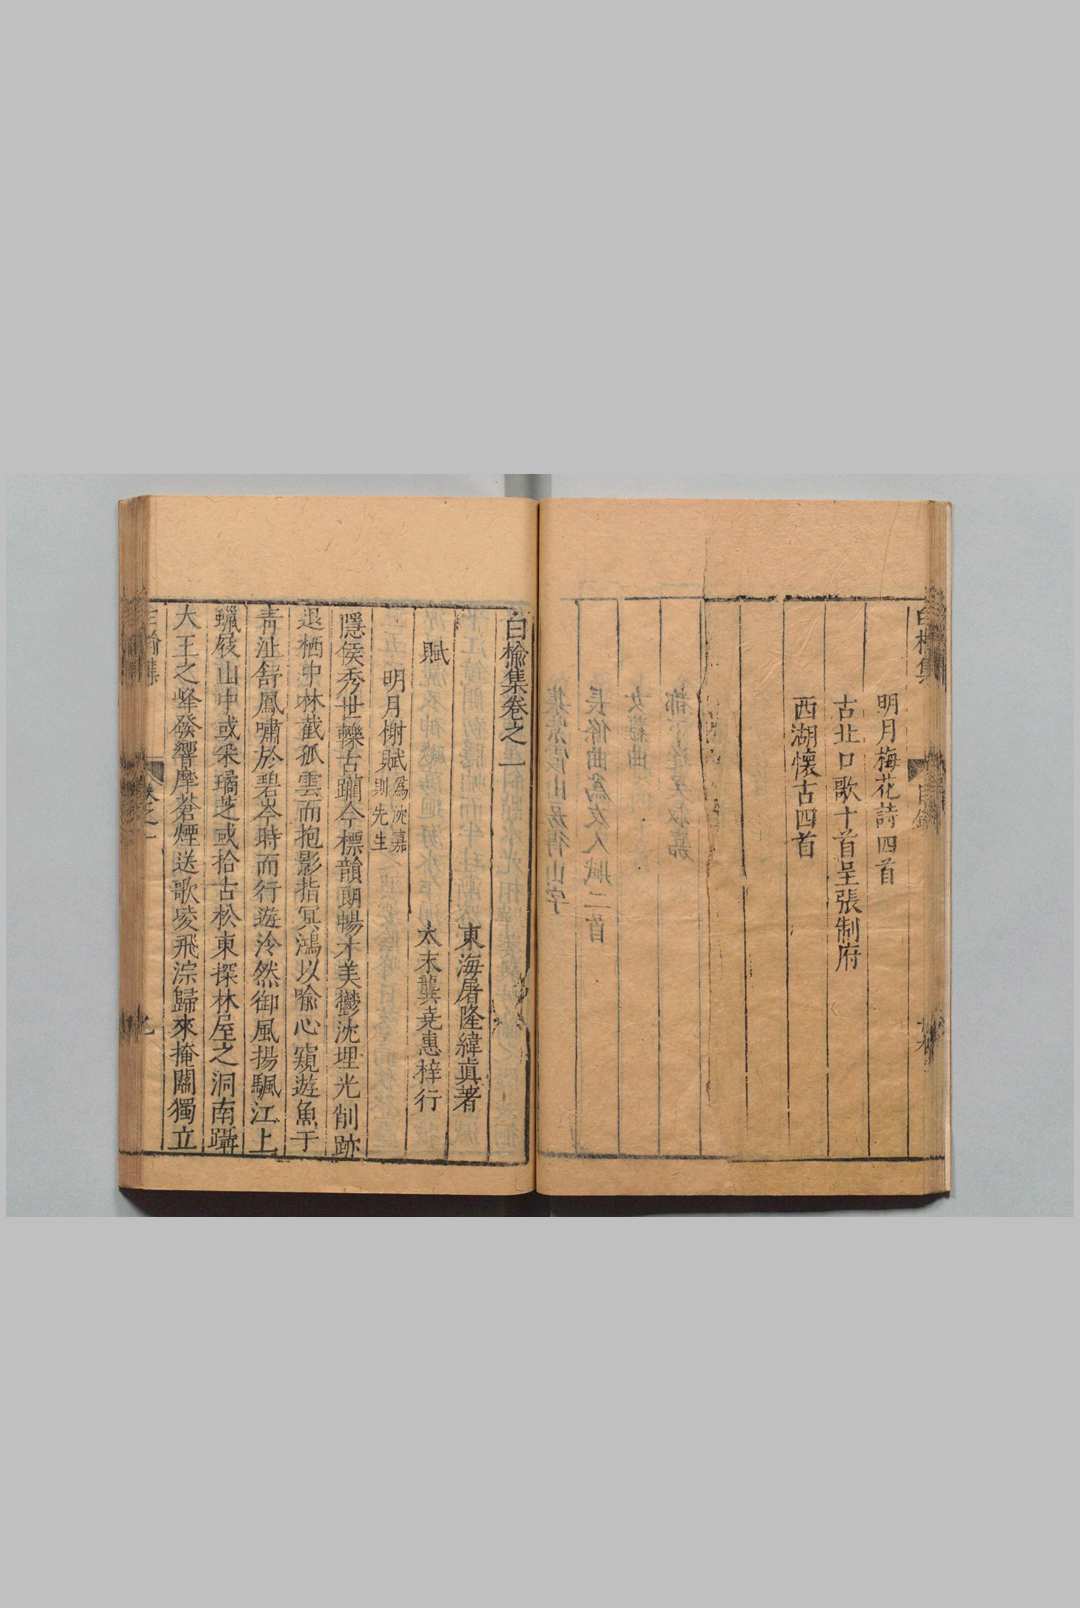 明月梅花詩四首
古北口歌十首呈張制府
西湖懷古四首
白榆集卷之一
東海屠隆緯眞著
賦
太末龔堯惠梓行
明月榭賦爲沈嘉則先生
隱侯秀世轢古躪今標韻朗暢才美鬱沈埋光削跡
退栖中林截孤雲而抱影指冥鴻以喻心窺遊魚于
靑沚舒鳳嘯於碧岑時而行遊泠然御風揚颿江上
蠟屐山中或采璚芝或拾古松東探林屋之洞南躡
大王之峰發響摩蒼煙送歌凌飛淙歸來掩關獨立